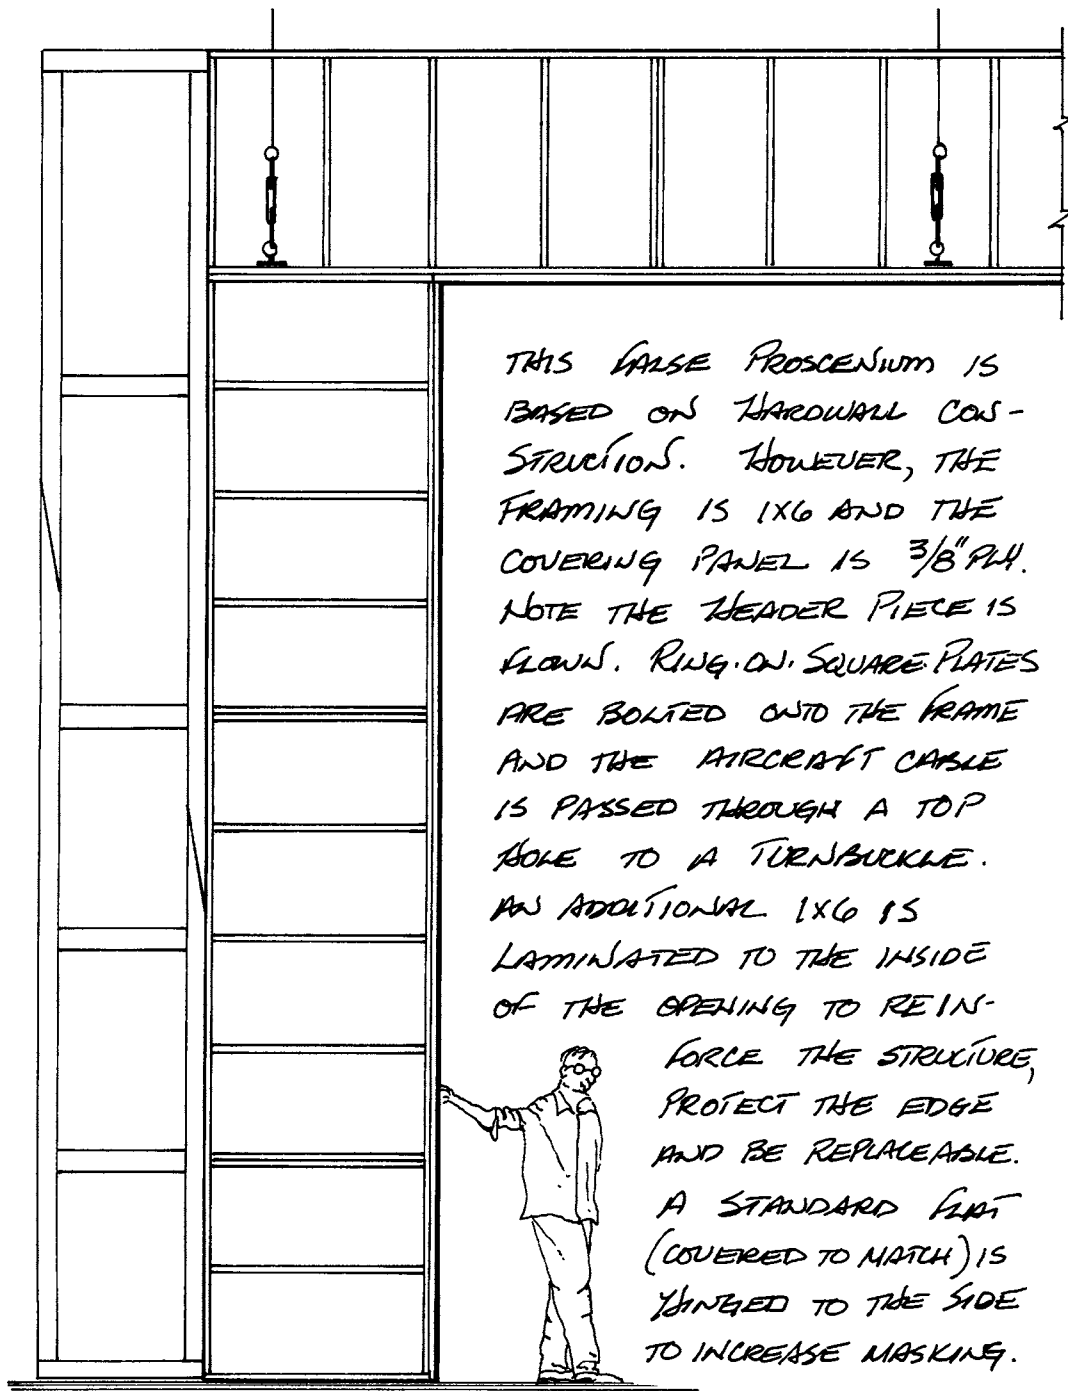 THIS FALSE PROSCENIUM IS
BASED ON HARDWALL CON-
STRUCTION. HOWEVER, THE
FRAMING IS 1X6 AND THE
COVERING PANEL IS 3/8" PLY.
NOTE THE HEADER PIECE IS
FLOWN. RING·ON·SQUARE PLATES
ARE BOLTED ONTO THE FRAME
AND THE AIRCRAFT CABLE
IS PASSED THROUGH A TOP
HOLE TO A TURNBUCKLE.
AN ADDITIONAL 1X6 IS
LAMINATED TO THE INSIDE
OF THE OPENING TO REIN-
FORCE THE STRUCTURE,
PROTECT THE EDGE
AND BE REPLACEABLE.
A STANDARD FLAT
(COVERED TO MATCH) IS
HINGED TO THE SIDE
TO INCREASE MASKING.